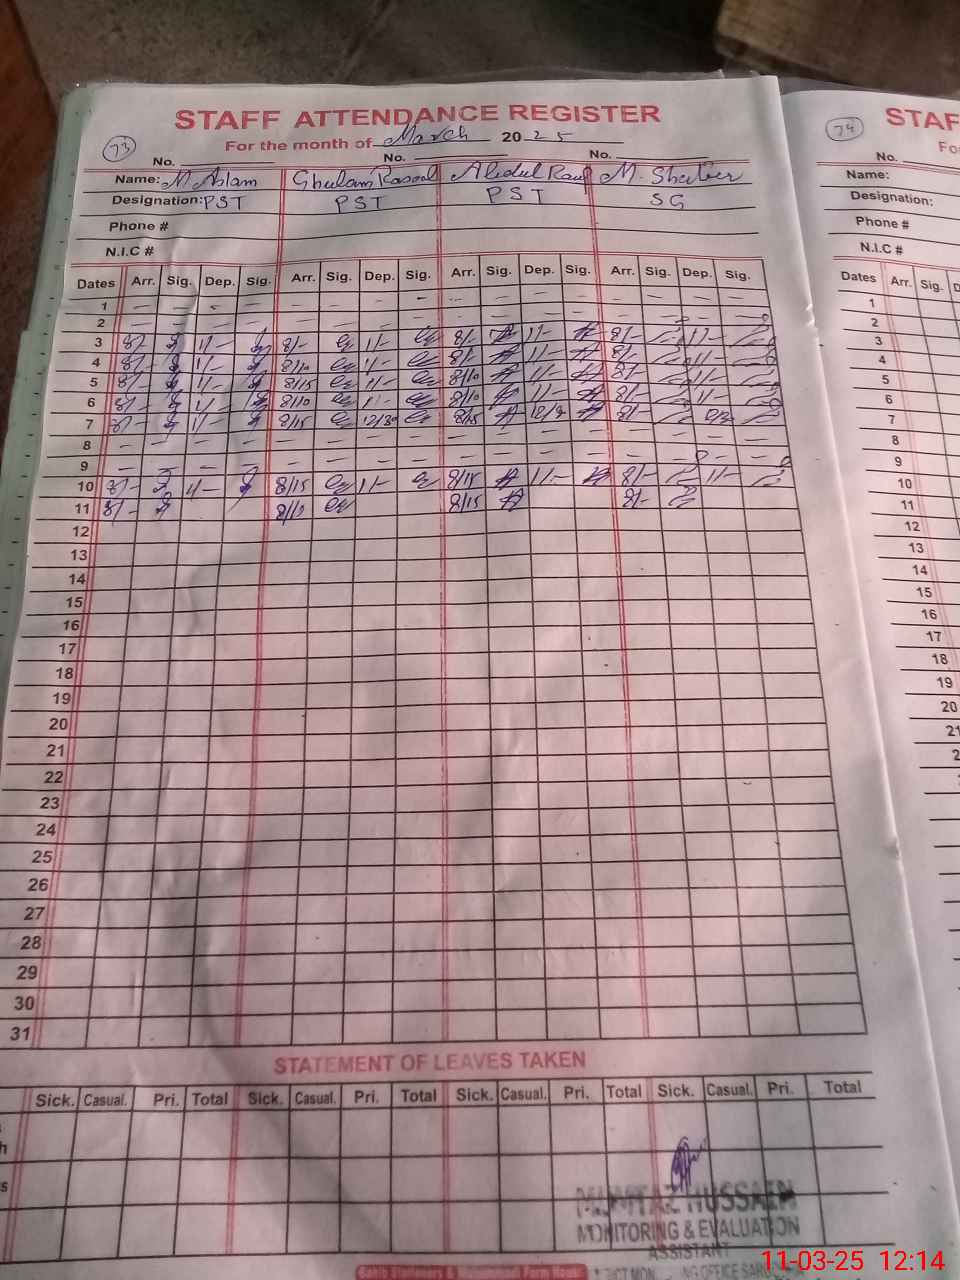 STAFF ATTENDANCE REGISTER
73
For the month of March 2025
No. No. No.
Name: M. Aslam Ghulam Rasool Abdul Rauf M. Shabeer
Designation: PST PST PST SG
Phone #
N.I.C #
Dates Arr. Sig. Dep. Sig. Arr. Sig. Dep. Sig. Arr. Sig. Dep. Sig. Arr. Sig. Dep. Sig.
1 — — — — — — — — — — — — — — — —
2 — — — — — — — — — — — — — — — —
3 8/- 1/- 8/- 11/- 8/- 11/- 8/- 11/-
4 8/- 1/- 8/10 11/- 8/- 11/- 8/- 11/-
5 8/- 11/- 8/15 11/- 8/10 11/- 8/- 11/-
6 8/- 8/10 11/- 8/10 11/- 8/- 11/-
7 8/- 1/- 8/15 12/30 8/15 8/-
8 — — — — — — — — — — — — — — — —
9 — — — — — — — — — — — — — — — —
10 8/- 8/15 11/- 8/15 11/- 8/- 11/-
11 8/- 8/10 8/15 8/-
12
13
14
15
16
17
18
19
20
21
22
23
24
25
26
27
28
29
30
31
STATEMENT OF LEAVES TAKEN
Sick. Casual. Pri. Total Sick. Casual. Pri. Total Sick. Casual. Pri. Total Sick. Casual. Pri. Total
MUMTAZ HUSSAEN
MONITORING & EVALUATION
ASSISTANT
11-03-25 12:14
74
STAF
Fo
No.
Name:
Designation:
Phone #
N.I.C #
Dates Arr. Sig. D
1
2
3
4
5
6
7
8
9
10
11
12
13
14
15
16
17
18
19
20
21